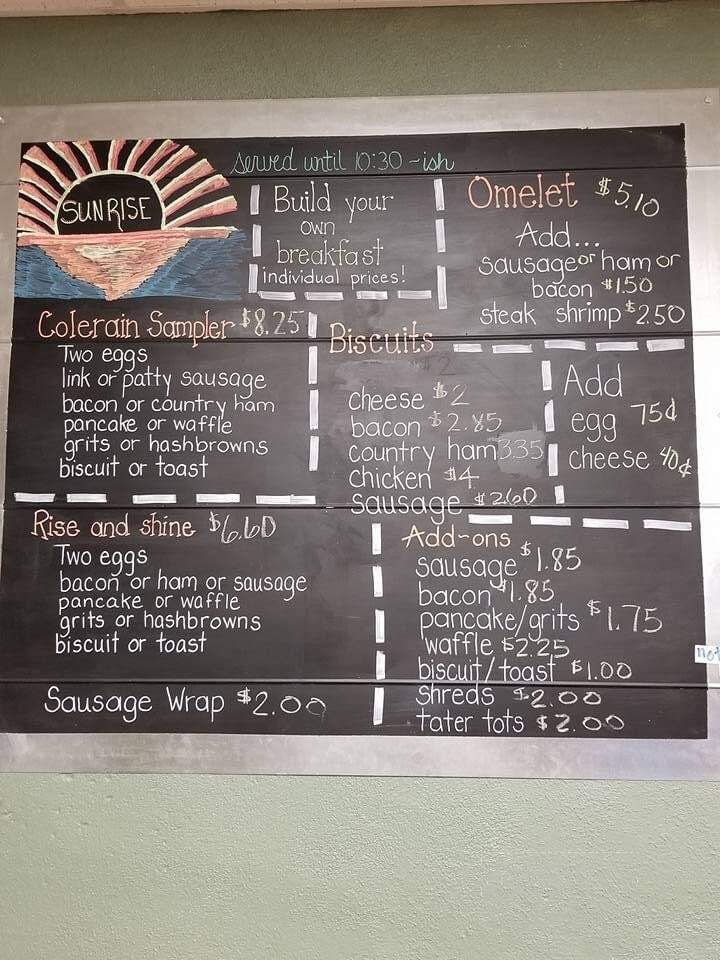 served until 10:30-ish
SUNRISE
Build your
own
breakfast
individual prices!
Omelet $5.10
Add...
Sausage or ham or
bacon $1.50
steak shrimp $2.50
Colerain Sampler $8.25
Two eggs
link or patty sausage
bacon or country ham
pancake or waffle
grits or hashbrowns
biscuit or toast
Biscuits
cheese $2
bacon $2.85
country ham 3.35
chicken $4
Sausage $2.60
Add
egg 75¢
cheese 40¢
Rise and shine $6.60
Two eggs
bacon or ham or sausage
pancake or waffle
grits or hashbrowns
biscuit or toast
Sausage Wrap $2.00
Add-ons
sausage $1.85
bacon $1.85
pancake/grits $1.75
waffle $2.25
biscuit/toast $1.00
Shreds $2.00
tater tots $2.00